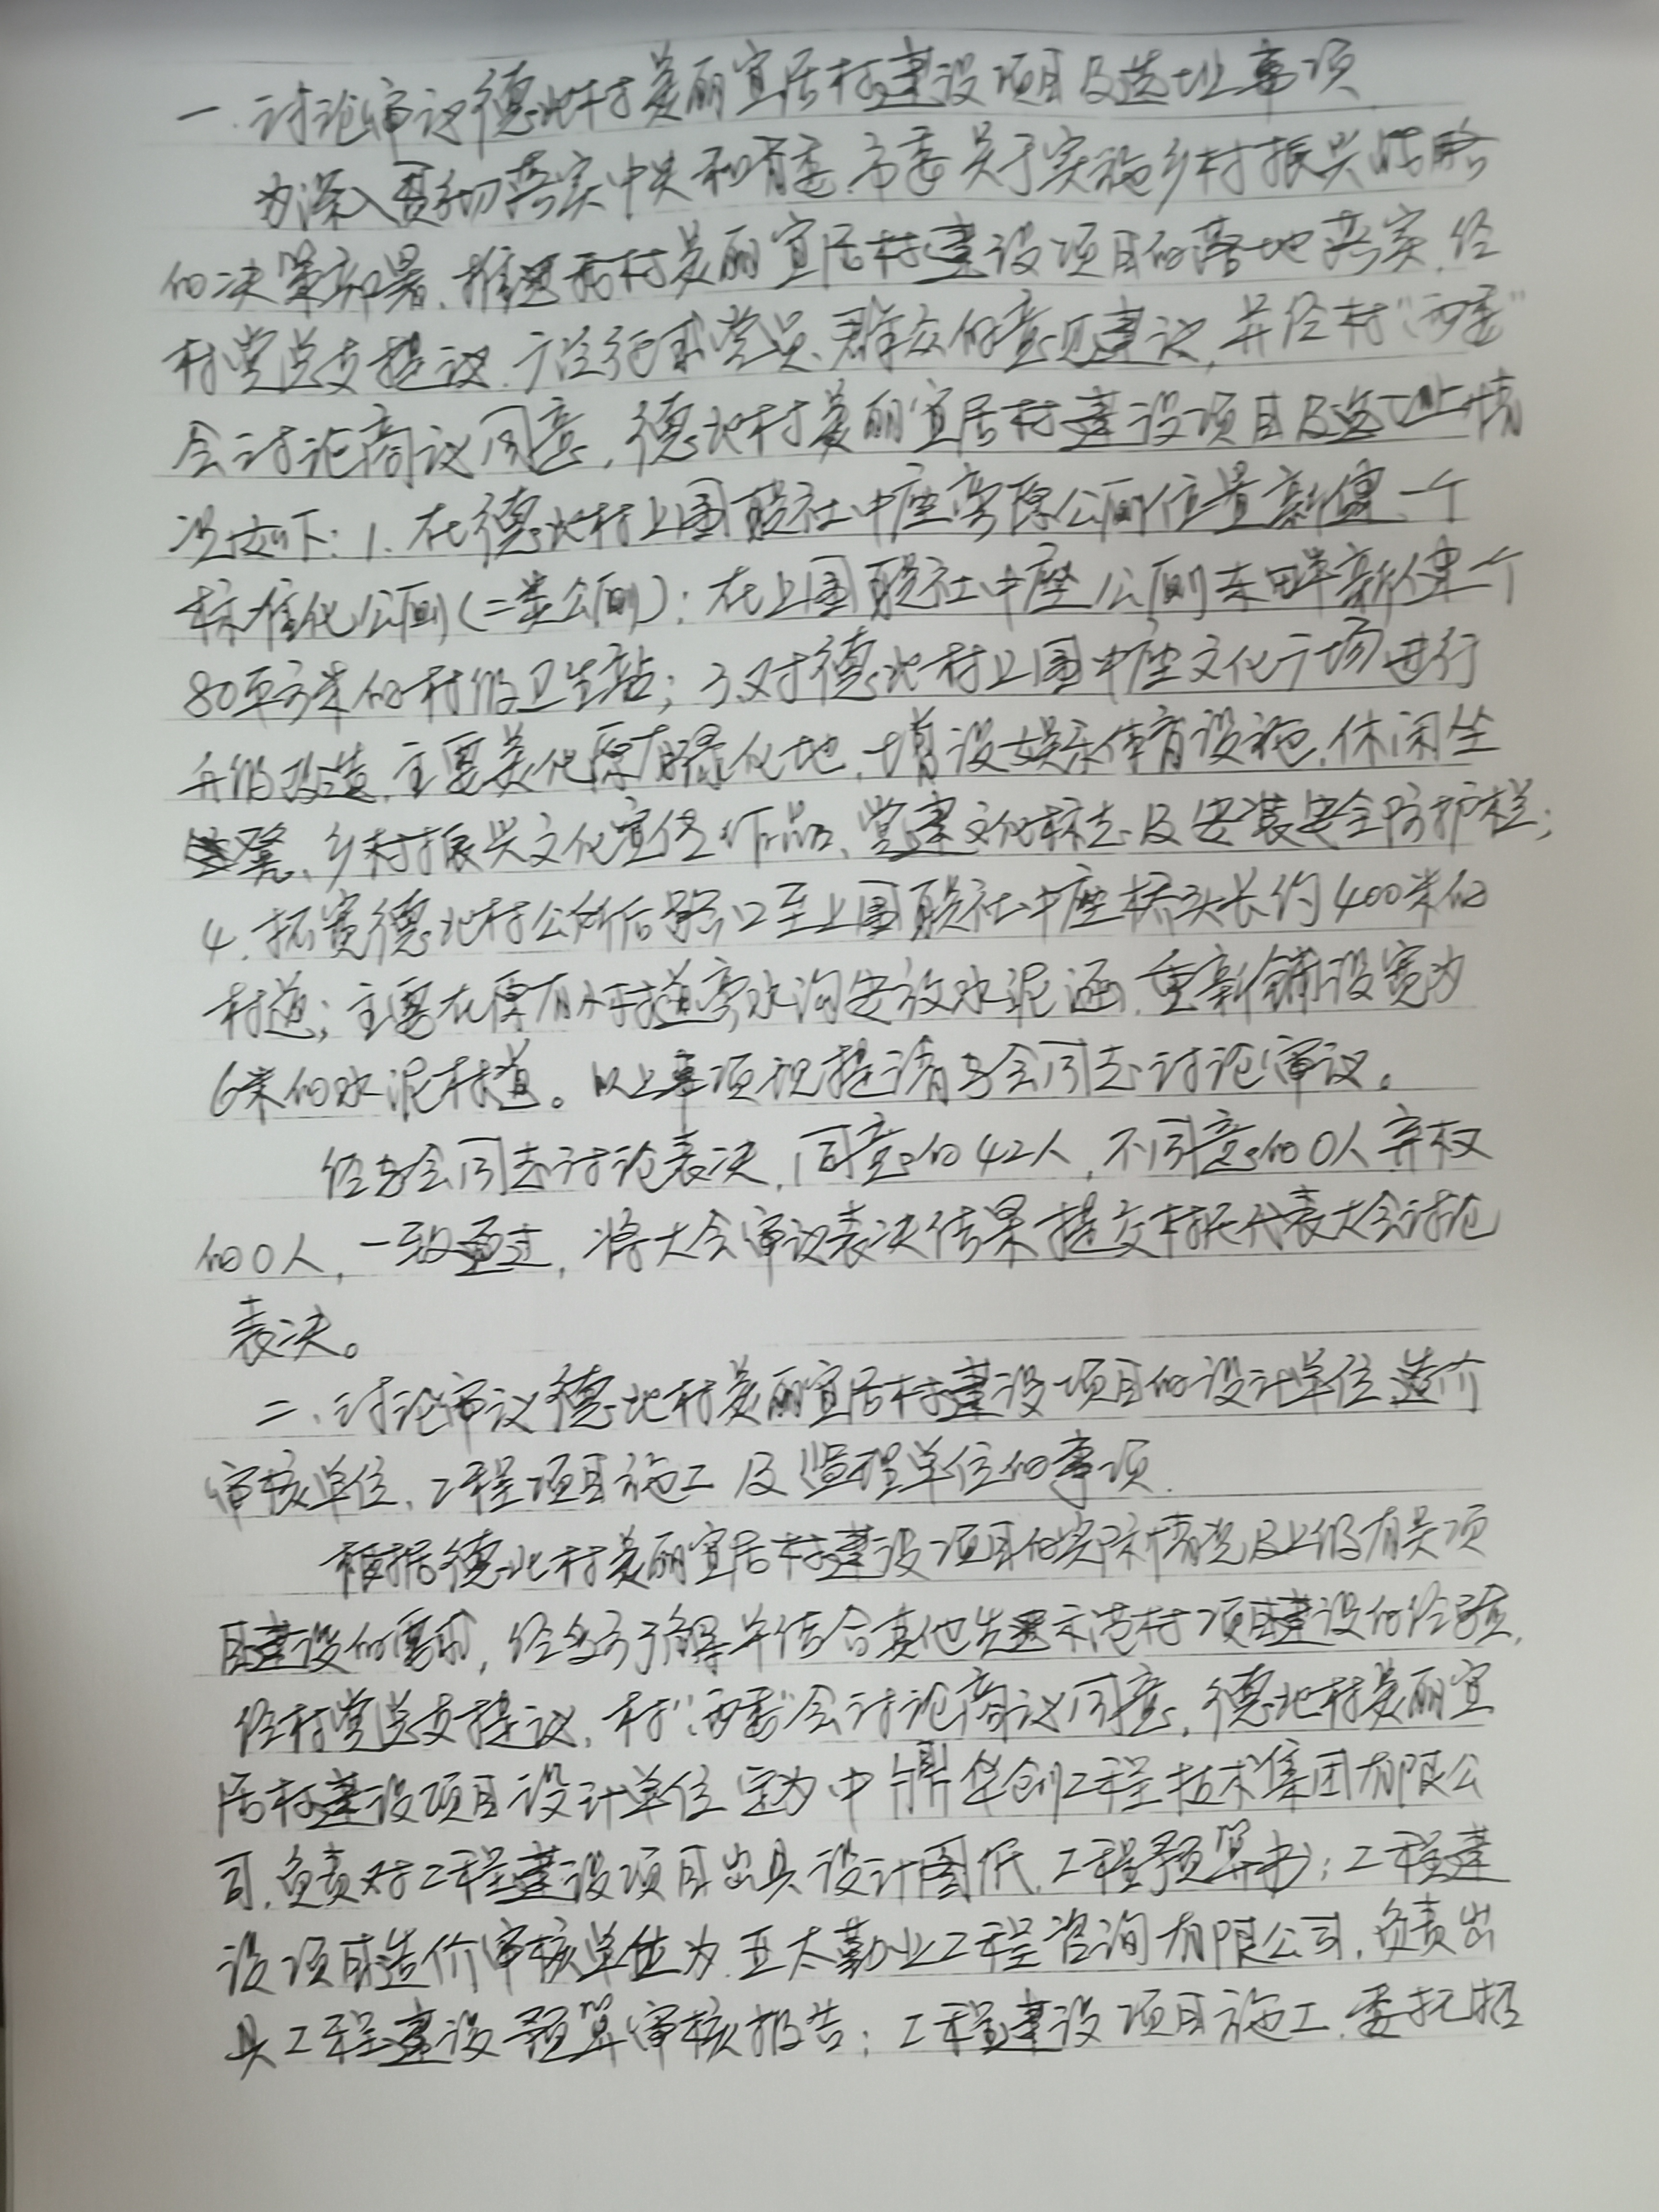 一.讨论审议德北村美丽宜居村建设项目及选址事项
为深入贯彻落实中央和省委、市委关于实施乡村振兴战略
的决策部署,推进我村美丽宜居村建设项目的落地落实,经
村党总支提议,广泛征求党员、群众的意见建议,并经村“两委”
会讨论商议同意,德北村美丽宜居村建设项目及选址情
况如下:1、在德北村上围股社中座旧公厕位置新建一个
标准化公厕(二类公厕);在上围股社中座公厕东畔新建一个
80平方米的村级卫生站;3、对德北村上围中座文化广场进行
升级改造,主要美化原有绿化地,增设娱乐体育设施,休闲坐
凳、乡村振兴文化宣传作品、党建文化标志及安装安全防护栏;
4.拓宽德北村公所后路口至上围股社中座桥头长约400米的
村道;主要在原有村道旁水沟安放水泥涵,重新铺设宽为
6米的水泥村道。以上事项现提请与会同志讨论审议。
经与会同志讨论表决,同意的42人,不同意的0人,弃权
的0人,一致通过,将大会审议表决结果提交村民代表大会讨论
表决。
二、讨论审议德北村美丽宜居村建设项目的设计单位、造价
审核单位、工程项目施工及监理单位的事项.
根据德北村美丽宜居村建设项目的实际情况及上级有关项
目建设的需求,经多方了解并结合其他先进示范村项目建设的经验,
经村党总支提议,村“两委”会讨论商议同意,德北村美丽宜
居村建设项目设计单位定为中鼎华创工程技术集团有限公
司,负责对工程建设项目出具设计图纸,工程预算书;工程建
设项目造价审核单位为亚太勤业工程咨询有限公司,负责出
具工程建设预算审核报告;工程建设项目施工,委托招